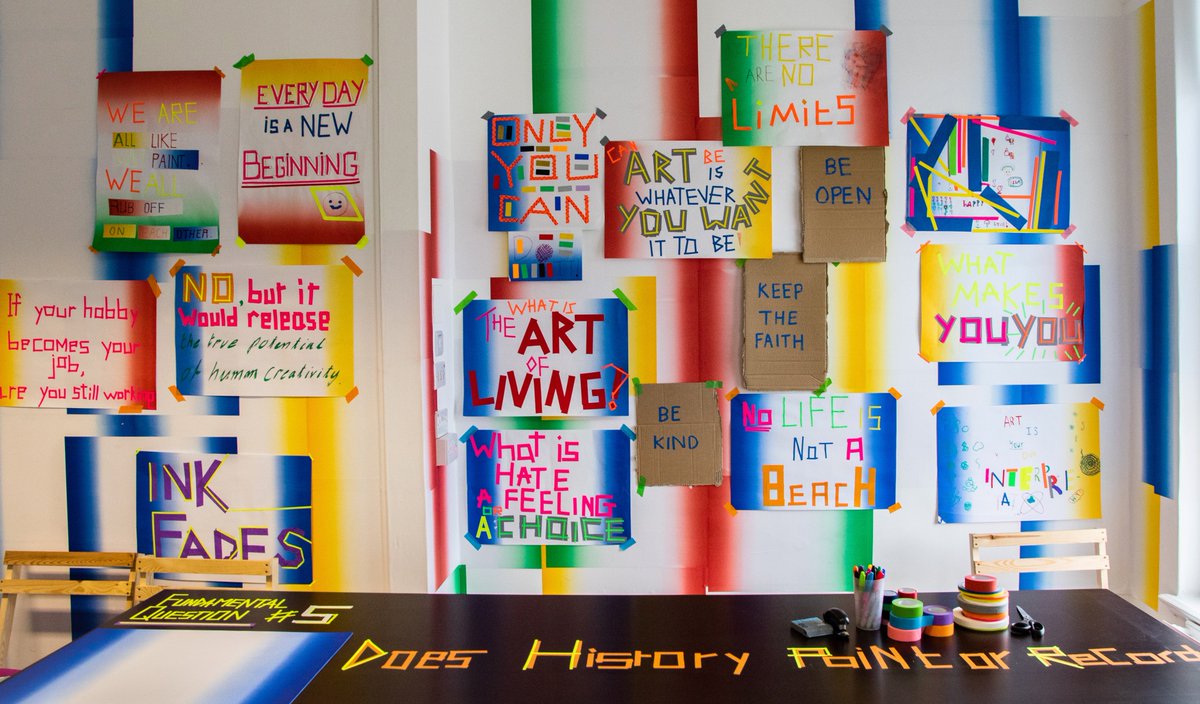 WE ARE
ALL LIKE
PAINT
WE ALL
RUB OFF
ON EACH OTHER.
EVERY DAY
iS A NEW
BEGINNiNG
If your hobby
becomes your
job,
are you still working
NO, but it
would release
the true potential
of human creativity.
INK
FADES
ONLY
YOU
CAN
CAN ART BE
IS
WHATEVER
YOU WANT
IT TO BE
THERE
ARE NO
LiMitS
BE
OPEN
KEEP
THE
FAITH
BE
KIND
WHAT IS
THE ART
OF
LIVING?
What is
HATE
A FEELING
OR
A CHOICE
HAPPY
WHAT
MAKES
YOU YOU
No LIFE iS
NOT A
BEACH
ART
IS
YOUR
INTERPRI
FUNDAMENTAL
QUESTION #5
DOES HISTORY POiNT OR RECORD